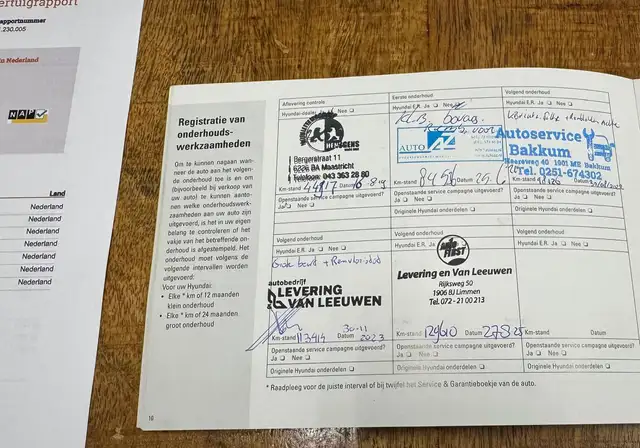 ertuigrapport
apportnummer
.230.005
in Nederland
NAP
Land
Nederland
Nederland
Nederland
Nederland
Nederland
Nederland
Registratie van
onderhouds-
werkzaamheden
Om te kunnen nagaan wan-
neer de auto aan het volgen-
de onderhoud toe is en om
(bijvoorbeeld bij verkoop van
uw auto) te kunnen aanto-
nen welke onderhoudswerk-
zaamheden aan uw auto zijn
uitgevoerd, is het in uw eigen
belang te controleren of het
vakje van het betreffende on-
derhoud is afgestempeld. Het
onderhoud moet volgens de
volgende intervallen worden
uitgevoerd:
Voor uw Hyundai:
• Elke * km of 12 maanden
klein onderhoud
• Elke * km of 24 maanden
groot onderhoud
16
Aflevering controle
Hyundai-dealer Ja Nee
Bergerstraat 11
6226 BA Maastricht
Telefoon: 043 363 28 80
Km-stand Datum
Openstaande service campagne uitgevoerd?
Ja Nee
Eerste onderhoud
Hyundai E.R. Ja Nee
K.L.B. bovag
AUTO AZ
Km-stand Datum
Openstaande service campagne uitgevoerd?
Ja Nee
Originele Hyundai onderdelen
Volgend onderhoud
Hyundai E.R. Ja Nee
Autoservice
Bakkum
Heereweg 40 1901 ME Bakkum
Tel. 0251-674302
Openstaande service campagne uitgevoerd?
Ja Nee
Originele Hyundai onderdelen
Volgend onderhoud
Hyundai E.R. Ja Nee
Grote beurt + Remvloeistof
autobedrijf
LEVERING
& VAN LEEUWEN
Km-stand 113414 Datum 30-11 2023
Openstaande service campagne uitgevoerd?
Ja Nee
Originele Hyundai onderdelen
Volgend onderhoud
Hyundai E.R. Ja Nee
auto FIRST
Levering en Van Leeuwen
Rijksweg 50
1906 BJ Limmen
Tel. 072 - 21 00 213
Km-stand Datum 27 8 25
Openstaande service campagne uitgevoerd?
Ja Nee
Originele Hyundai onderdelen
Volgend onderhoud
Hyundai E.R. Ja Nee
Km-stand Datum
Openstaande service campagne uitgevoerd?
Ja Nee
Originele Hyundai onderdelen
* Raadpleeg voor de juiste interval of bij twijfel het Service & Garantieboekje van de auto.